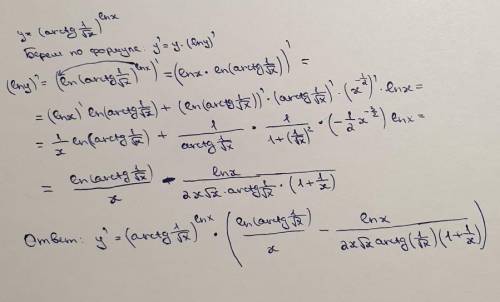 y = (arctg 1/√x)^lnx
Берем по формуле: y' = y · (lny)'
(lny)' = (ln(arctg 1/√x)^lnx)' = (lnx · ln(arctg 1/√x))' =
= (lnx)' ln(arctg 1/√x) + (ln(arctg 1/√x))' · (arctg 1/√x)' · (x^(-1/2))' · lnx =
= 1/x ln(arctg 1/√x) + 1/(arctg 1/√x) · 1/(1+(1/√x)²) · (-1/2 x^(-3/2)) lnx =
= ln(arctg 1/√x)/x - lnx/(2x√x · arctg 1/√x · (1+1/x))
Ответ: y' = (arctg 1/√x)^lnx · (ln(arctg 1/√x)/x - lnx/(2x√x arctg(1/√x)(1+1/x)))